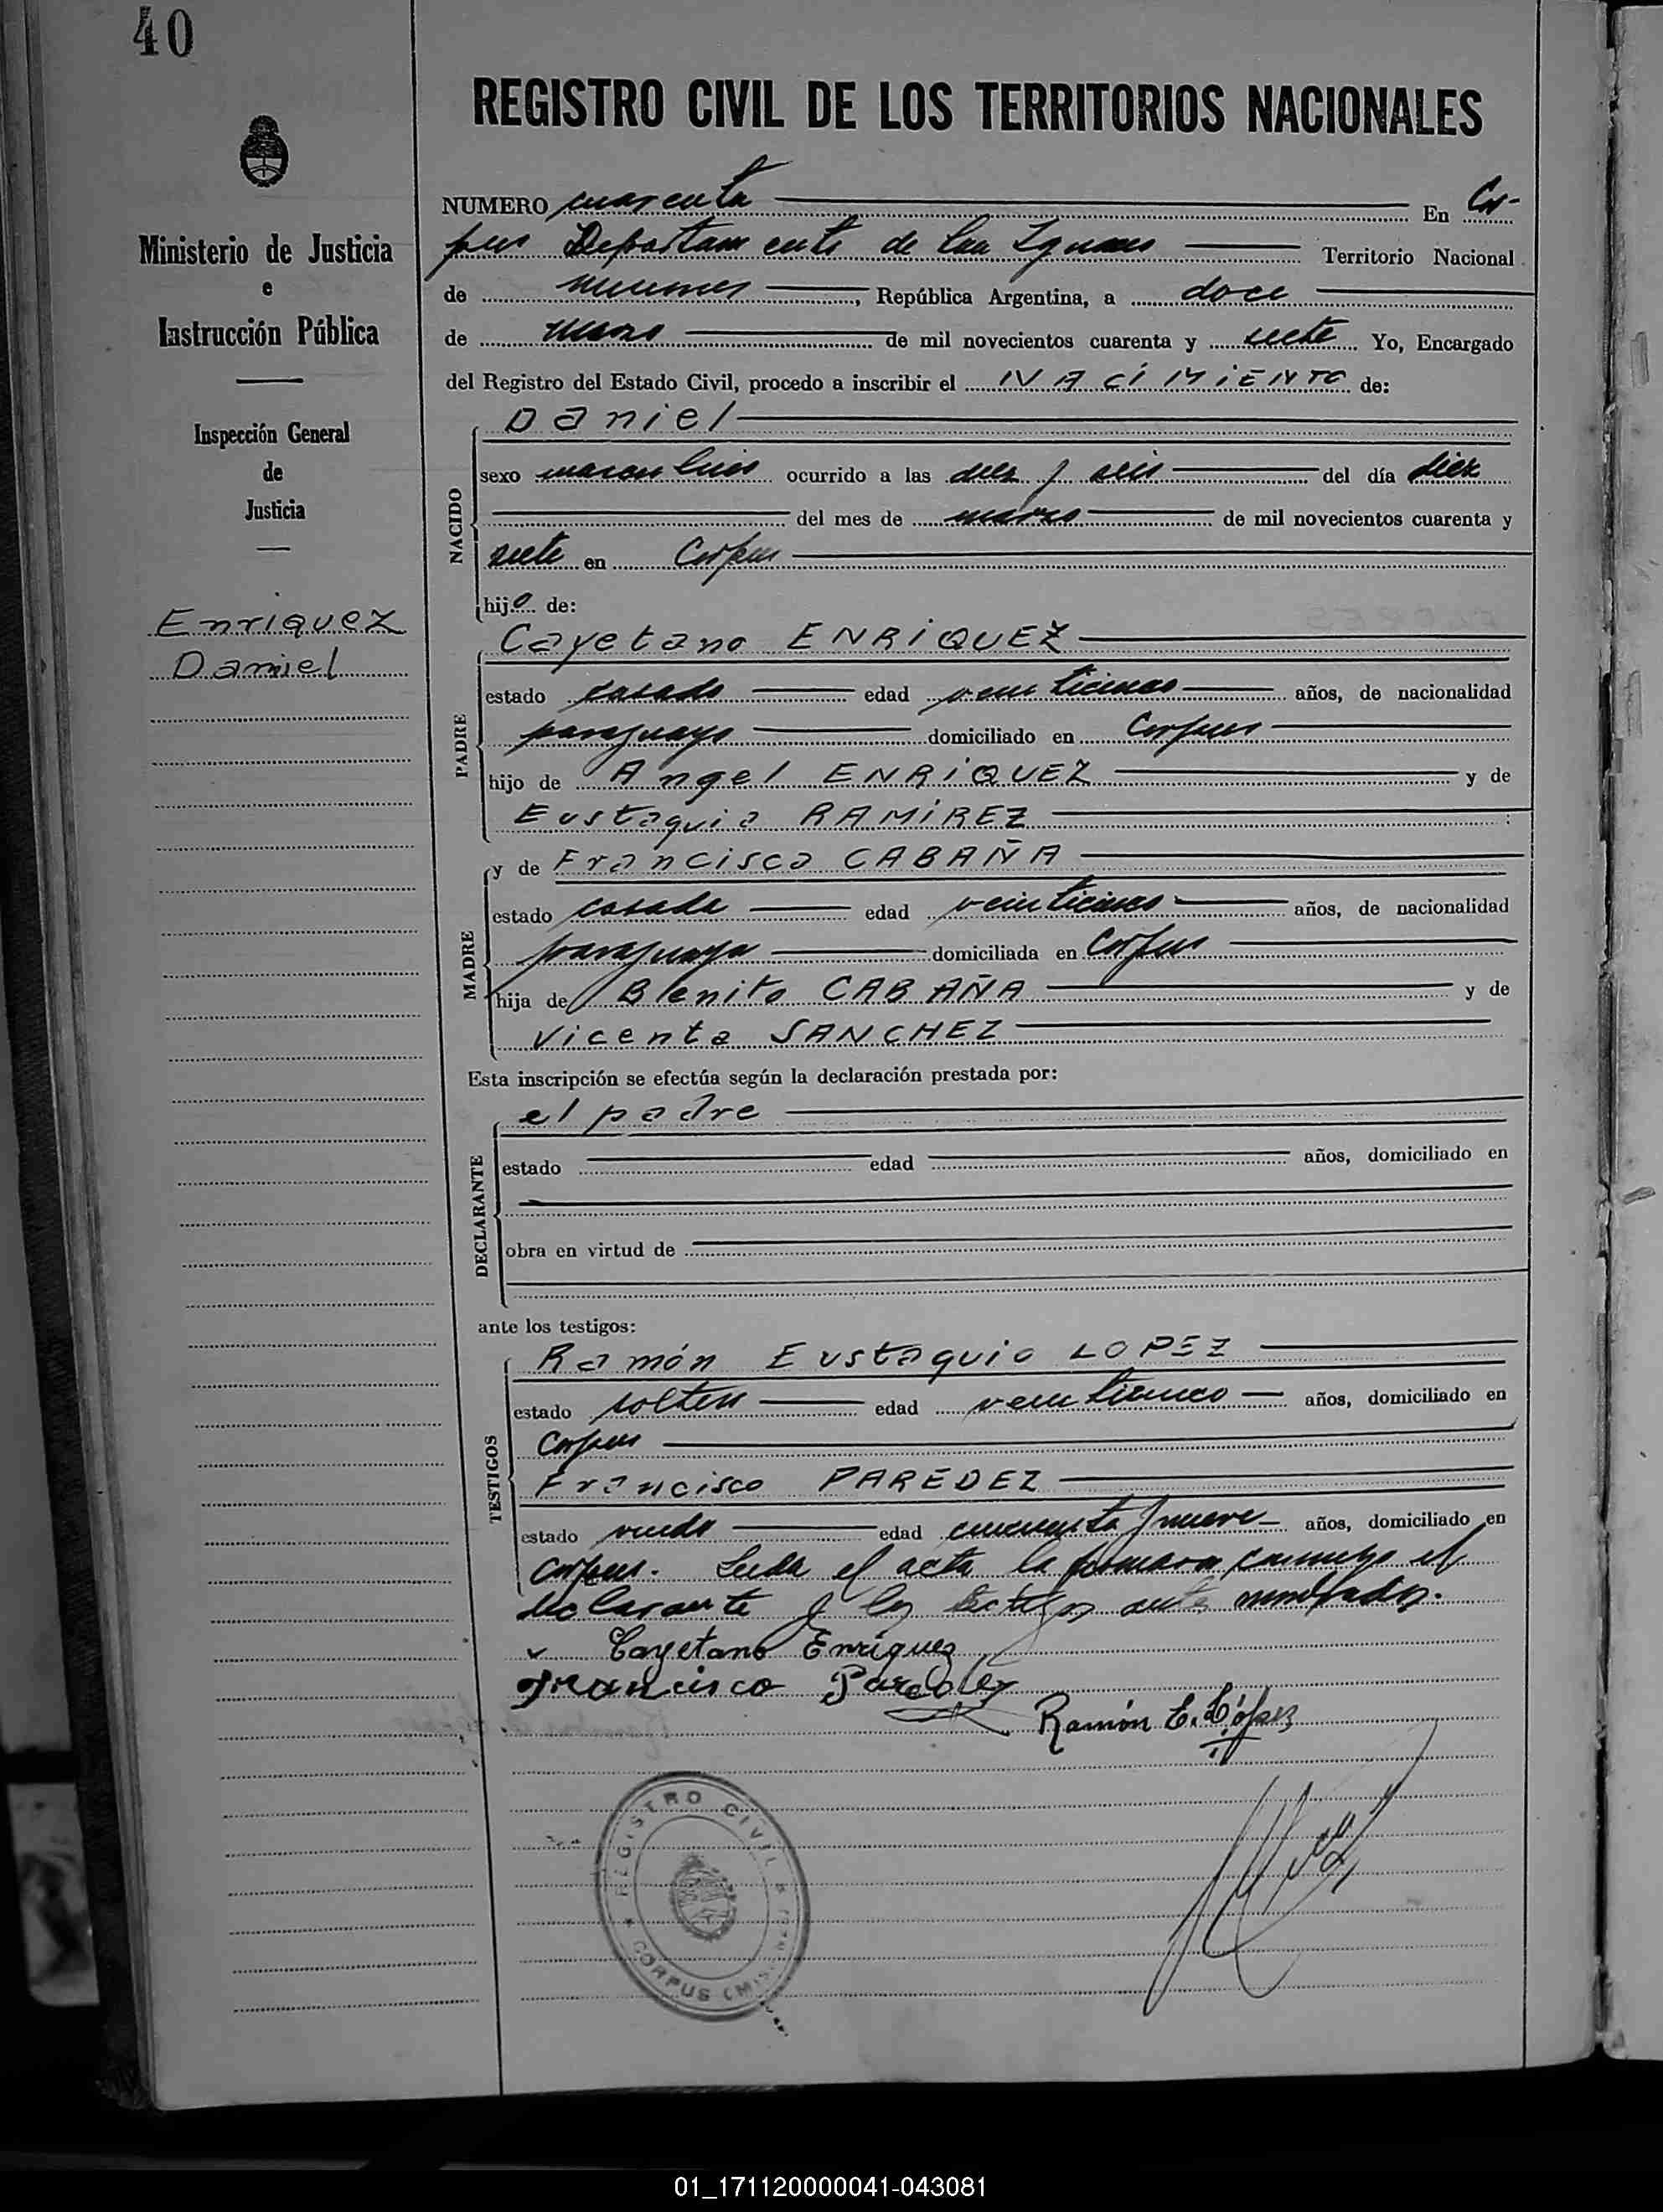 40
REGISTRO CIVIL DE LOS TERRITORIOS NACIONALES
Ministerio de Justicia
e
Instrucción Pública
Inspección General
de
Justicia
Enriquez
Daniel
NUMERO cuarenta En Cor-
pus Departamento de San Ignacio Territorio Nacional
de Misiones, República Argentina, a doce
de marzo de mil novecientos cuarenta y siete Yo, Encargado
del Registro del Estado Civil, procedo a inscribir el NACIMIENTO de:
NACIDO
Daniel
sexo masculino ocurrido a las diez y seis del día diez
del mes de marzo de mil novecientos cuarenta y
siete en Corpus
hijo de:
PADRE
Cayetano ENRIQUEZ
estado casado edad veinticinco años, de nacionalidad
paraguayo domiciliado en Corpus
hijo de Angel ENRIQUEZ y de
Eustaquia RAMIREZ
MADRE
y de Francisca CABAÑA
estado casada edad veinticinco años, de nacionalidad
paraguaya domiciliada en Corpus
hija de Benito CABAÑA y de
Vicenta SANCHEZ
Esta inscripción se efectúa según la declaración prestada por:
DECLARANTE
el padre
estado edad años, domiciliado en
obra en virtud de
ante los testigos:
TESTIGOS
Ramón Eustaquio LOPEZ
estado soltero edad veinticinco años, domiciliado en
Corpus
Francisco PAREDEZ
estado viudo edad cincuenta y nueve años, domiciliado en
Corpus. Leída el acta la firmaron conmigo el
declarante y los testigos ante nombrados.
Cayetano Enriquez
Francisco Paredez
Ramón E. López
REGISTRO CIVIL
CORPUS (MIS
01_171120000041-043081